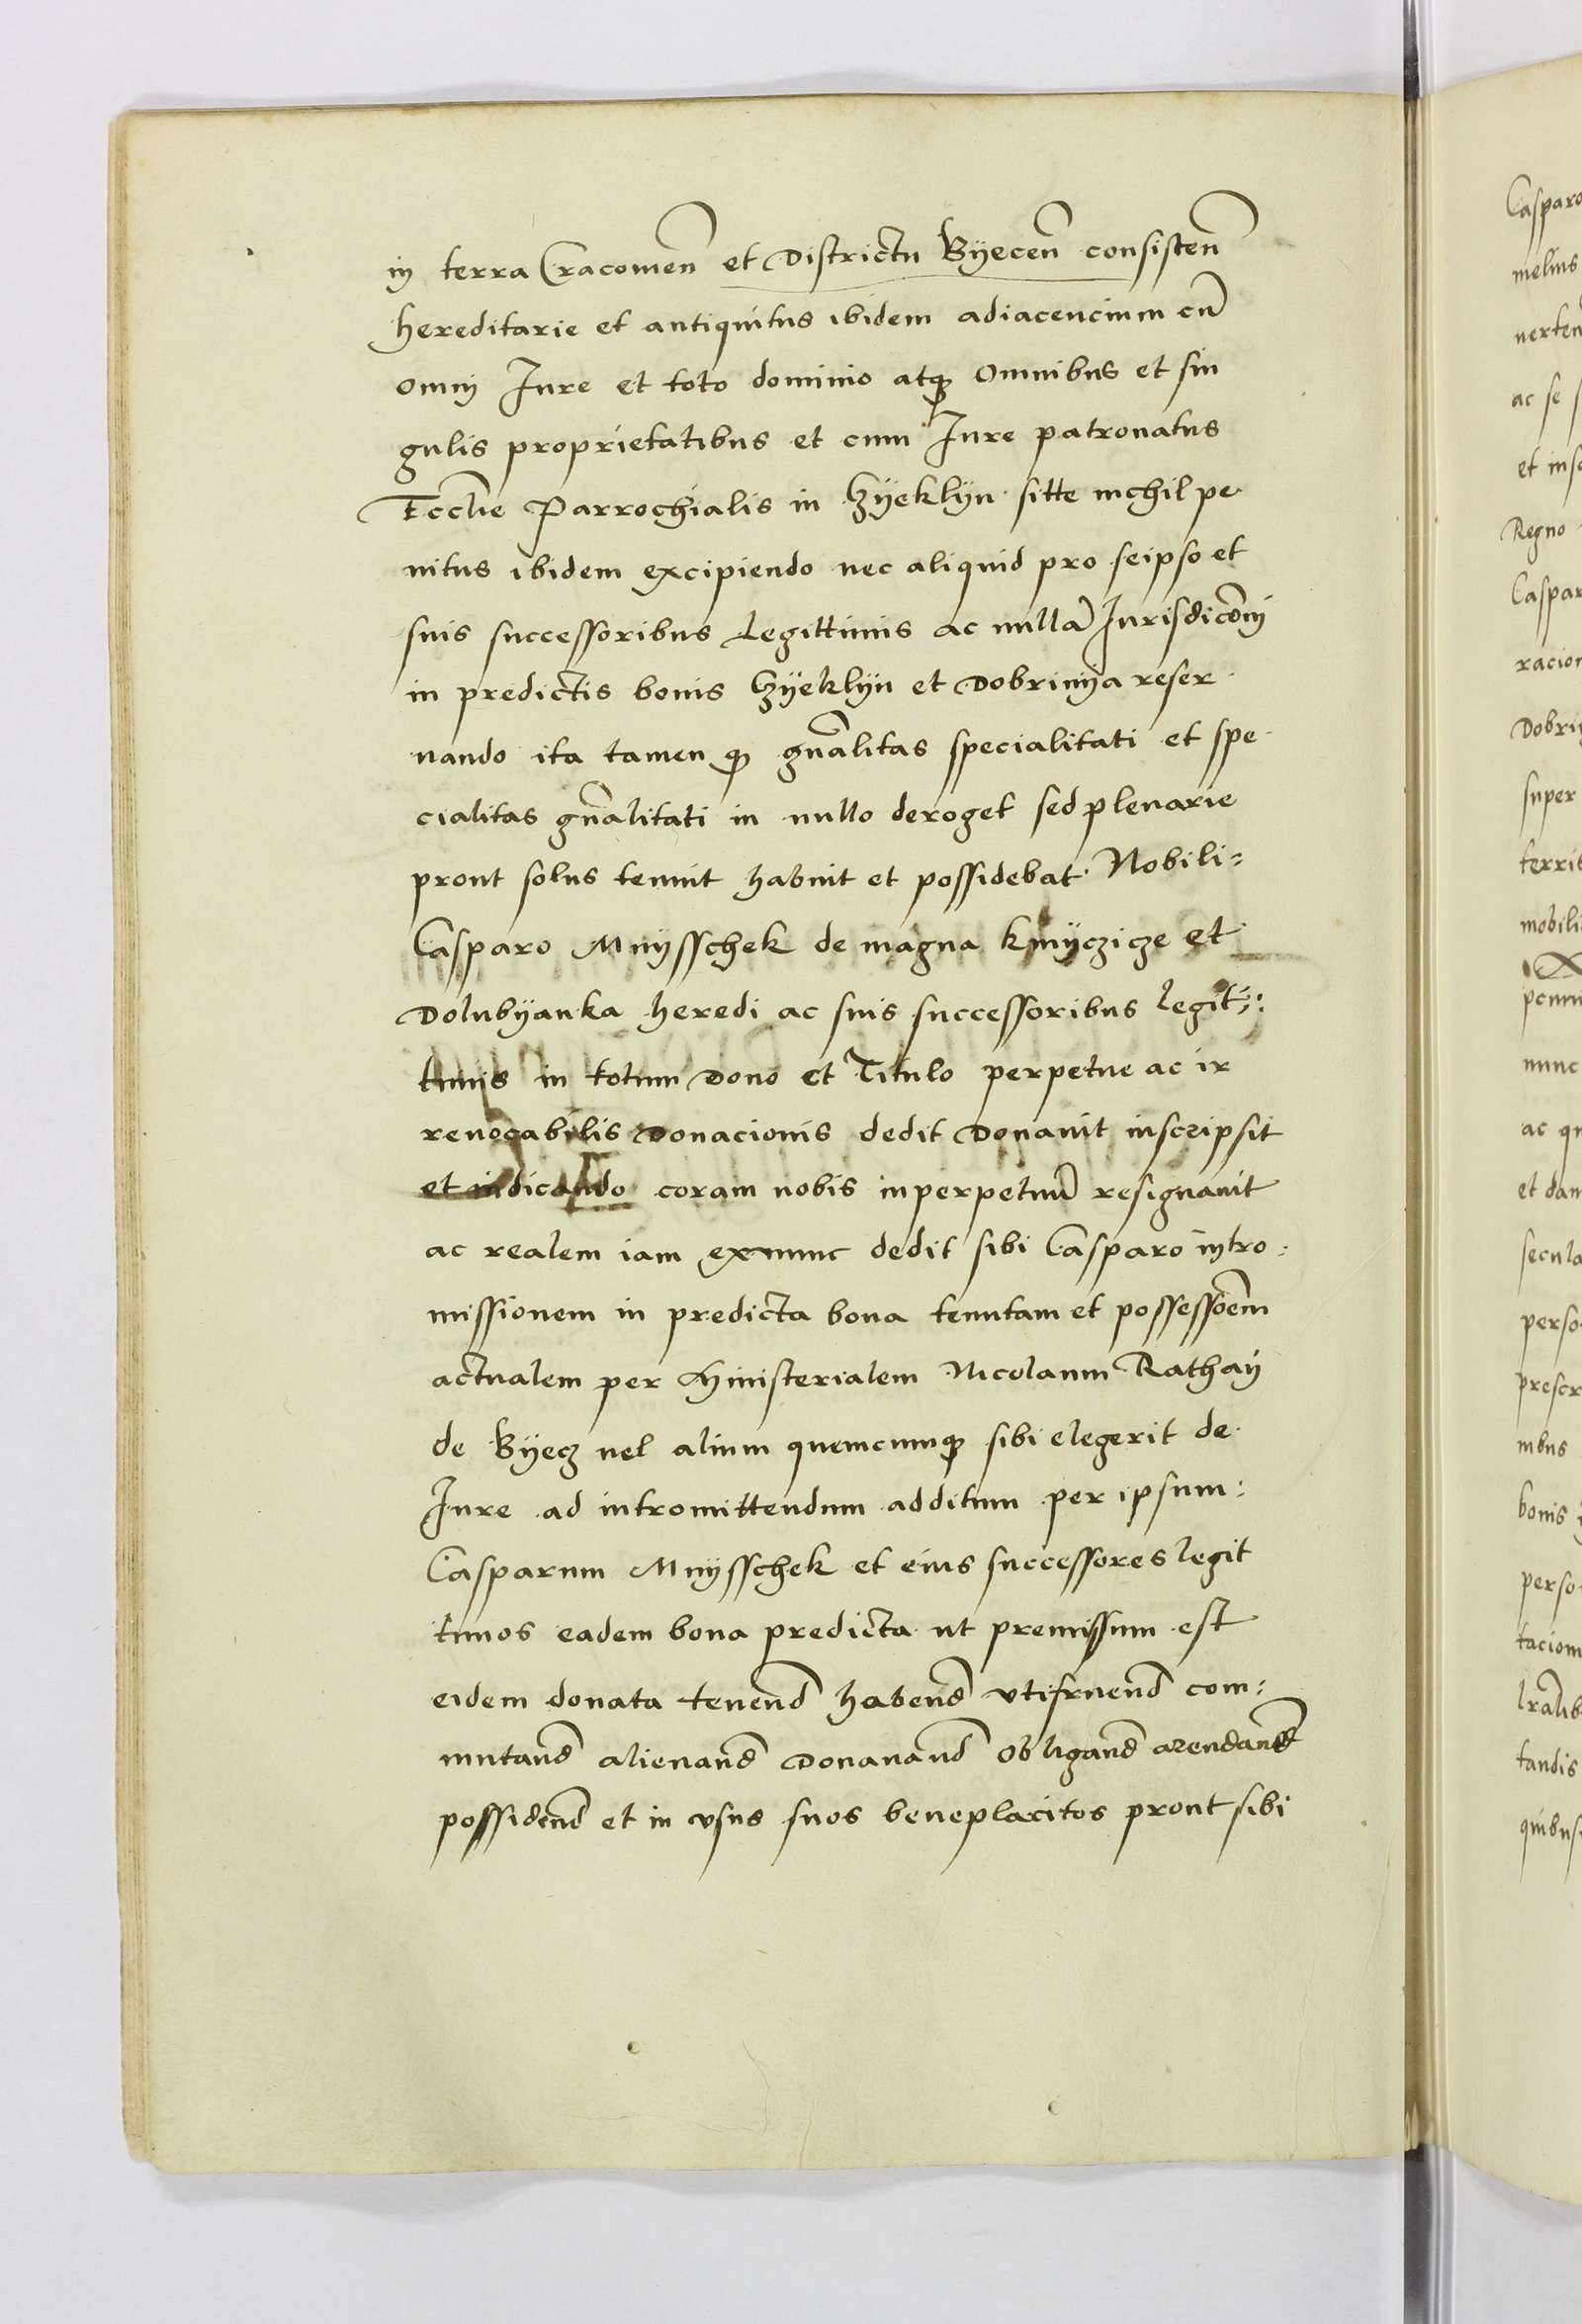 in terra Cracouien̄ et Districtu Byecen̄ consisten̄
hereditarie et antiquitus ibidem adiacencium cū
omni Iure et toto dominio atqꝫ Omnibus et sin
gulis proprietatibus et cum Iure patronatus
Eccl̄ie Parrochialis in Czyeklyn sitte nichil pe
nitus ibidem excipiendo nec aliquid pro seipso et
suis successoribus Legittimis ac nulla Iurisdicōni
in predictis bonis Czyeklyn et Dobrinya reser
uando ita tamen qꝫ gn̄alitas specialitati et spe
cialitas gn̄alitati in nullo deroget sed plenarie
prout solus tenuit habuit et possidebat Nobili=
Casparo Mnysschek de magna Knyczicze et
Dolubyanka heredi ac suis successoribus legit:
timis in totum Dono et Titulo perpetue ac ir
reuocabilis Donacionis dedit Donauit inscripsit
et indicando coram nobis inperpetuū resignauit
ac realem iam exnunc dedit sibi Casparo intro:
missionem in predicta bona tenutam et possessōem
actualem per Ministerialem Nicolaum Rathay
de Byecz uel alium quemcumqꝫ sibi elegerit de
Iure ad intromittendum additum per ipsum:
Casparum Mnysschek et eius successores legit
timos eadem bona predicta ut premissum est
eidem donata tenend̄ habend̄ vtifruend̄ com:
mutand̄ alienand̄ Donanand̄ Obligand̄ arendand̄
possidend̄ et in vsus suos beneplacitos prout sibi
Casparo
melius
ac se
Regno
Caspar
super
nunc
perso
bonis
perso
tandis